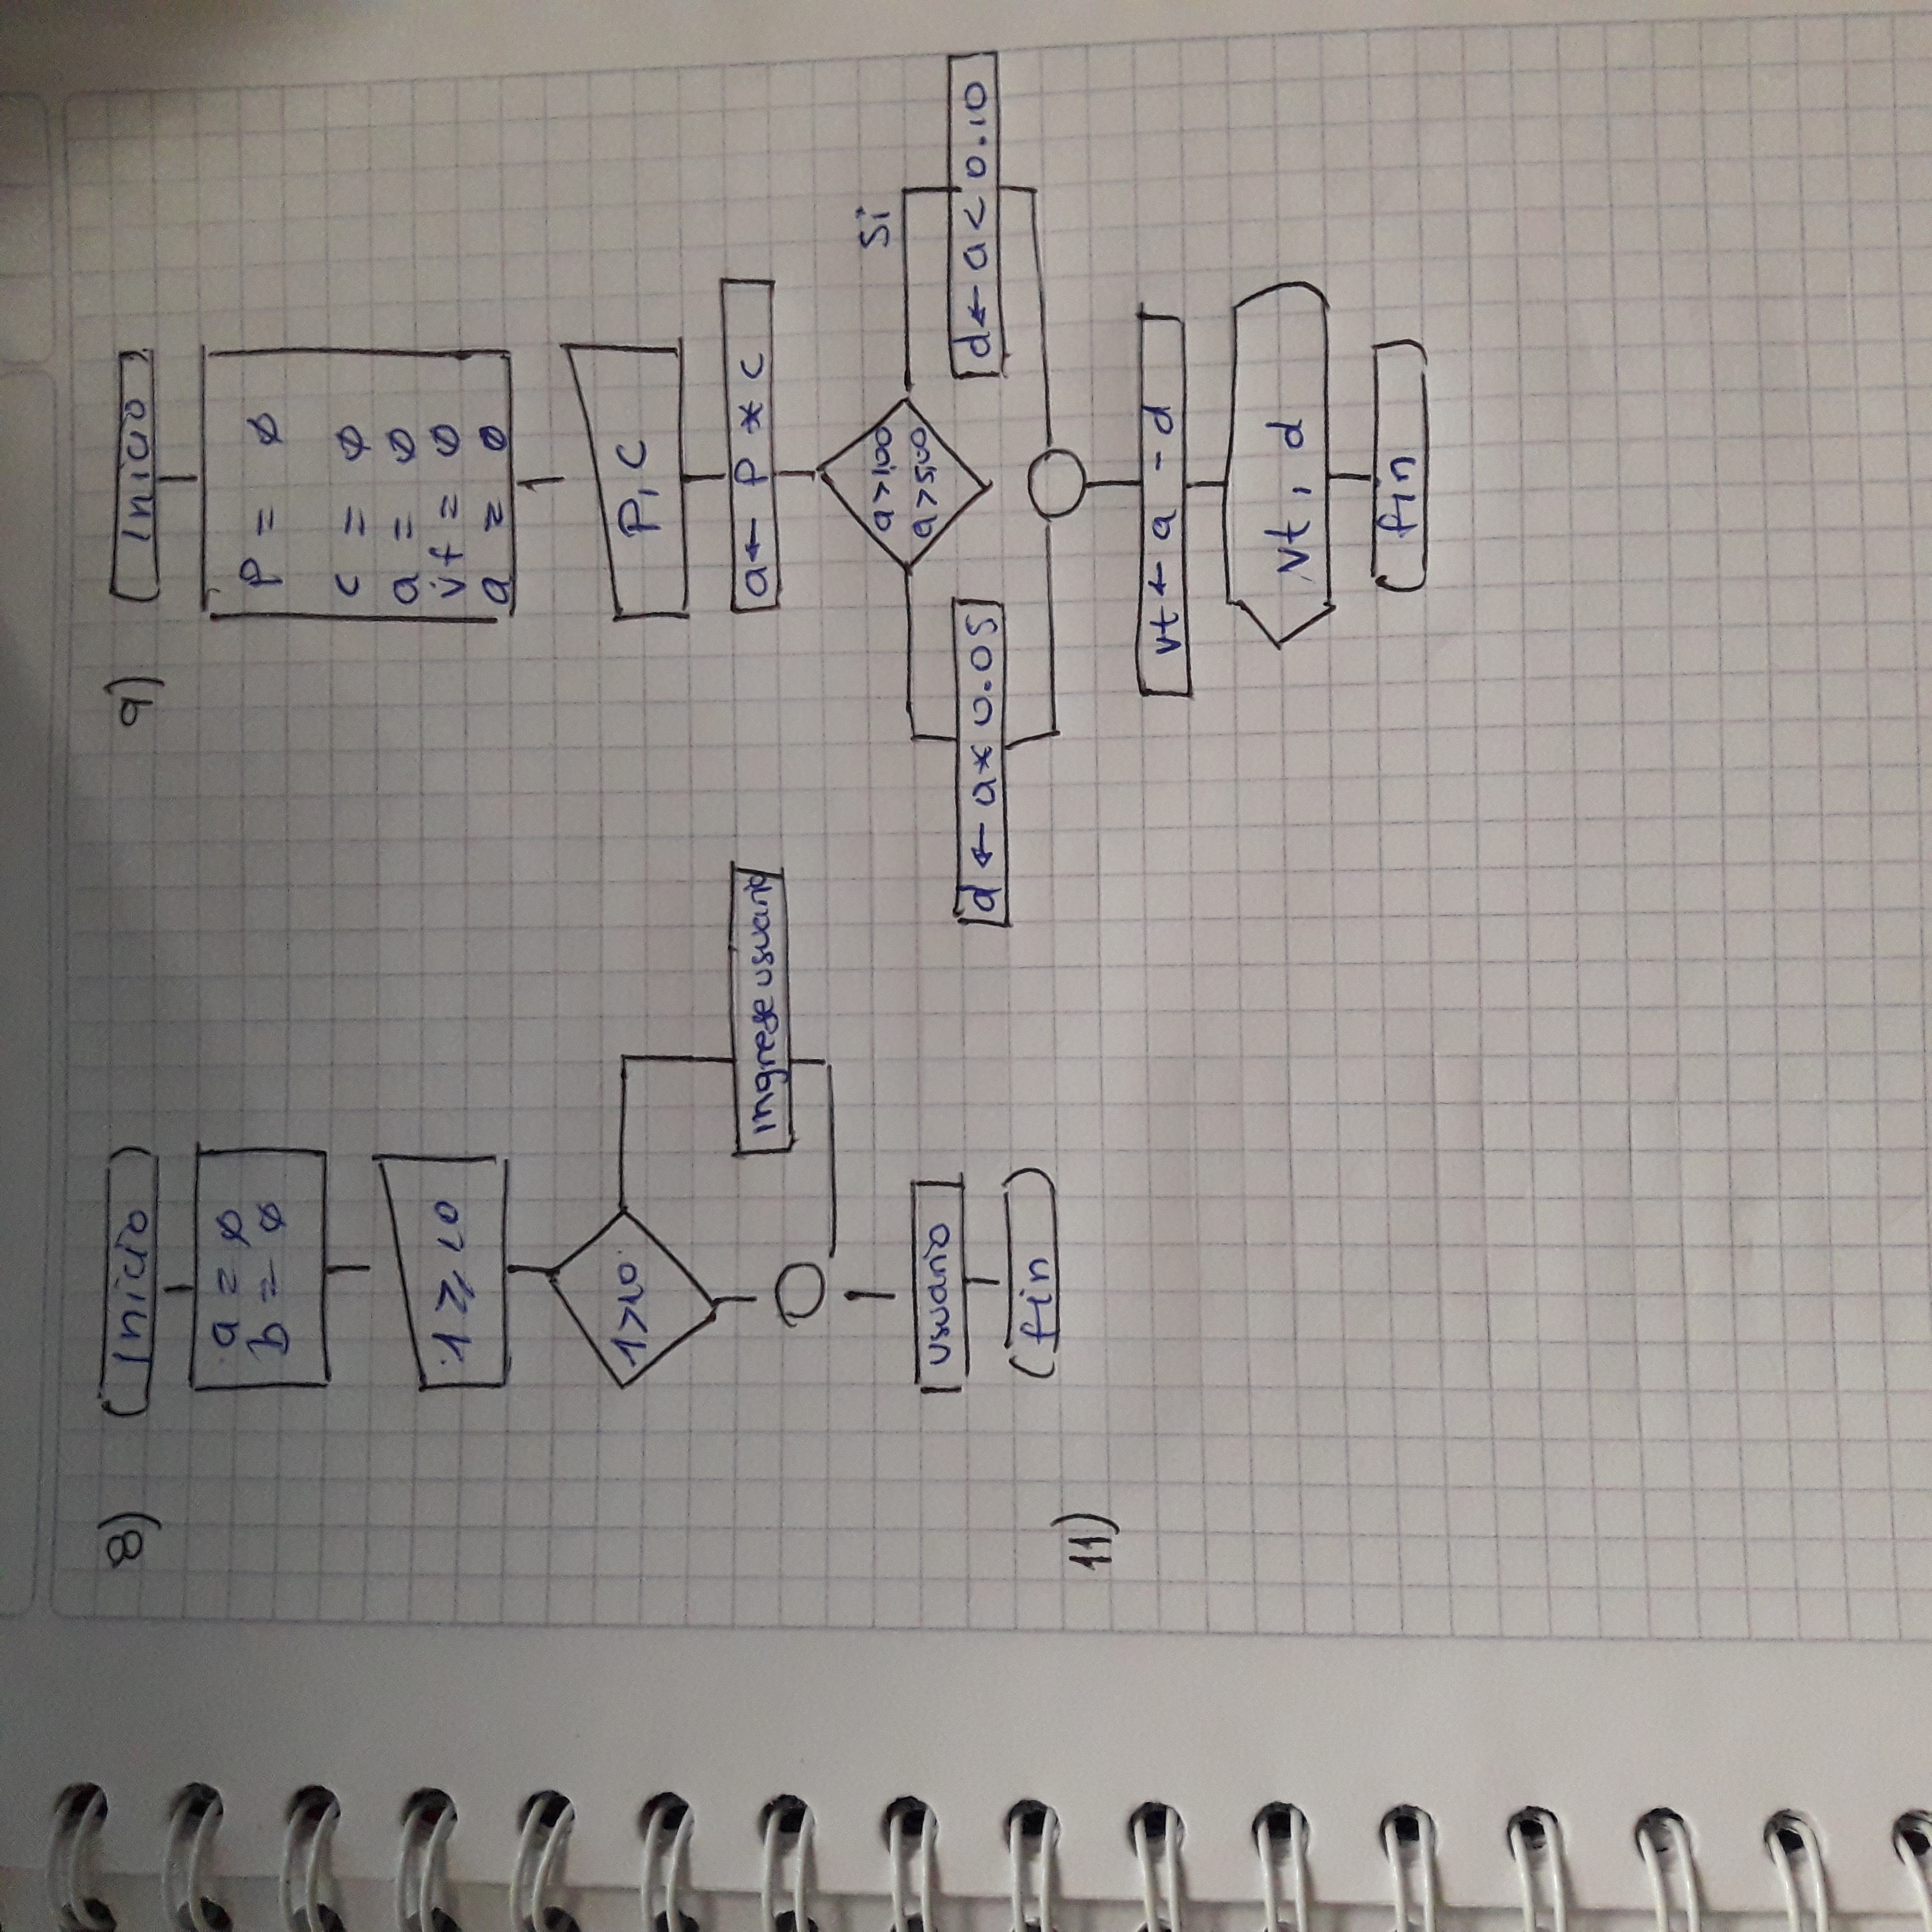 8)
Inicio
a = ∅
b = ∅
1 ≥ 10
1>10
ingrese usuario
usuario
fin
11)
9)
Inicio
P = ∅
c = ∅
a = ∅
vt = ∅
a = ∅
P, C
a ← P * c
a>1,00
a>5,00
Si
d ← a * 0.05
d ← a < 0.10
vt ← a - d
vt, d
fin